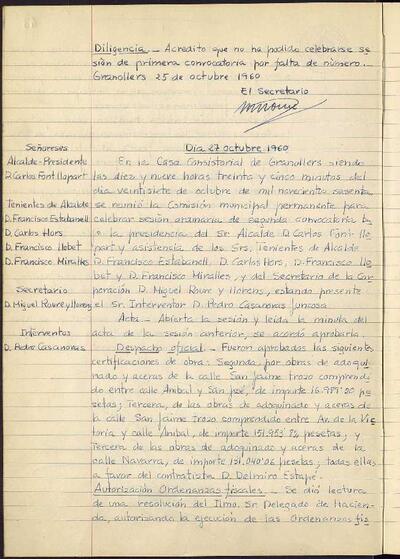 Diligencia - Acredito que no ha podido celebrarse se
sión de primera convocatoria por falta de número.-
Granollers 25 de octubre 1960
El Secretario
Señoreses
Alcalde-Presidente
D. Carlos Font Llopart
Tenientes de Alcalde
D. Francisco Estabanell
D. Carlos Hors
D. Francisco Llobet
D. Francisco Miralles
Secretario
D. Miguel Roure y Llorens
Interventor
D. Pedro Casanovas
Día 27 octubre 1960
En la Casa Consistorial de Granollers siendo
las diez y nueve horas treinta y cinco minutos del
día veintisiete de octubre de mil novecientos sesenta
se reunió la Comisión municipal permanente para
celebrar sesión ordinaria de segunda convocatoria ba
jo la presidencia del Sr. Alcalde D. Carlos Font Llo-
part y asistencia de los Srs. Tenientes de Alcalde
D. Francisco Estabanell, D. Carlos Hors, D. Francisco Llo
bet y D. Francisco Miralles, y del Secretario de la Cor
poración D. Miguel Roure y Llorens, estando presente
el Sr. Interventor D. Pedro Casanovas Juncosa
Acta - Abierta la sesión y leída la minuta del
acta de la sesión anterior, se acordó aprobarla.
Despacho oficial - Fueron aprobadas las siguientes
certificaciones de obra: Segunda, por obras de adoqui-
nado y aceras de la calle San Jaime trozo comprendi
do entre calle Anibal y San José, de importe pe
setas; Tercera, de las obras de adoquinado y aceras de
la calle San Jaime trozo comprendido entre Av. de la Vic
toria y calle Anibal, de importe pesetas; y
Tercera de las obras de adoquinado y aceras de la
calle Navarra, de importe 151.040'06 pesetas; todas ellas
a favor del contratista D. Delmiro Estapé.
Autorización Ordenanzas fiscales - Se dió lectura
de una resolución del Ilmo. Sr. Delegado de Hacien-
da, autorizando la ejecución de las Ordenanzas fis